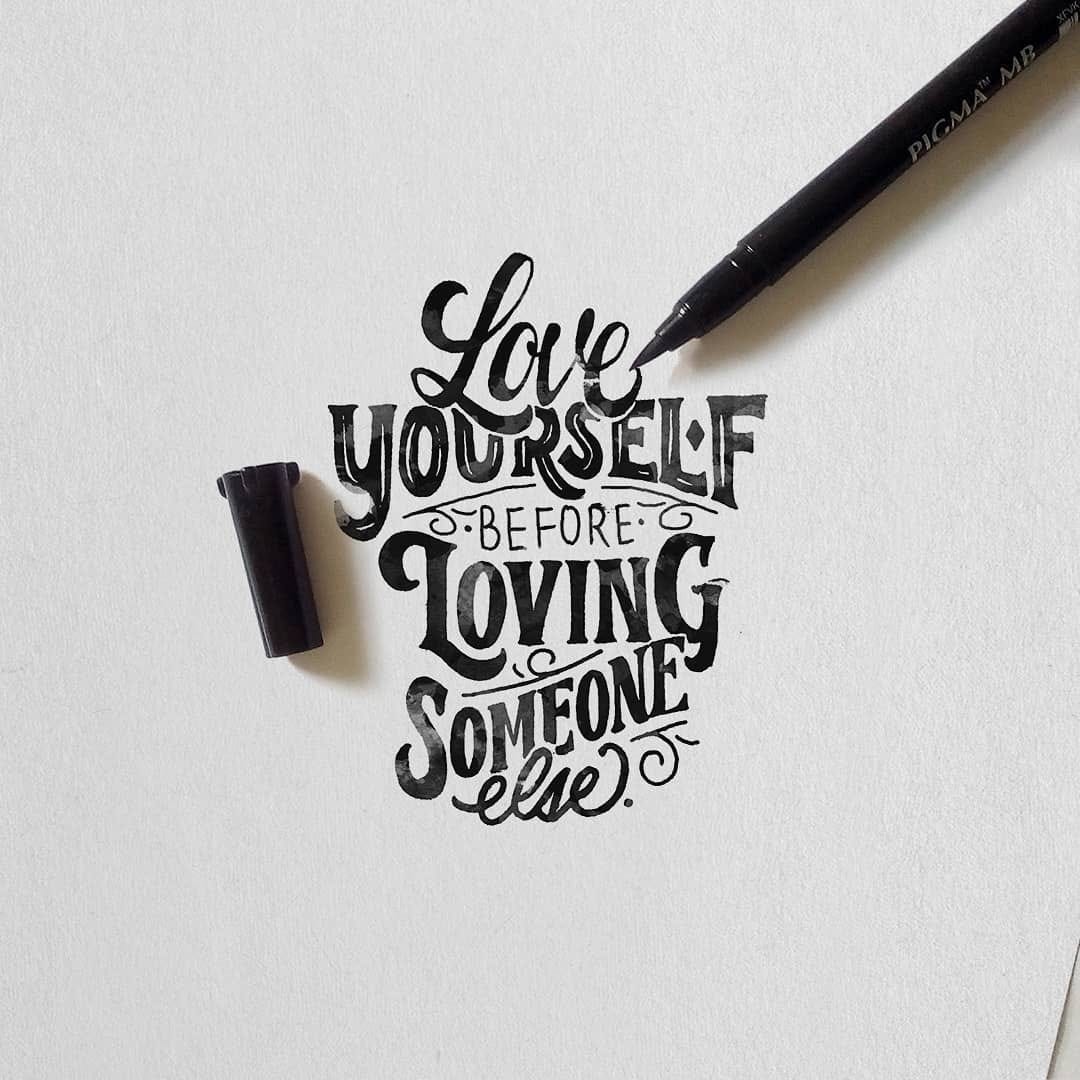 Love
YOURSELF
·BEFORE·
LOVING
SOMEONE
else.
PIGMA™ MB